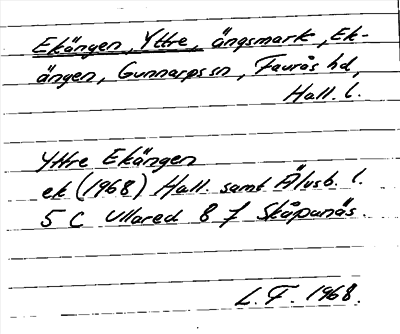 Ekängen, Yttre, ängsmark, Ek-
ängen, Gunnarps sn, Faurås hd,
Hall. l.
Yttre Ekängen
ek (1968) Hall. samt Älvsb. l.
5 C Ullared 8 f Skåpanäs.
L. F. 1968.